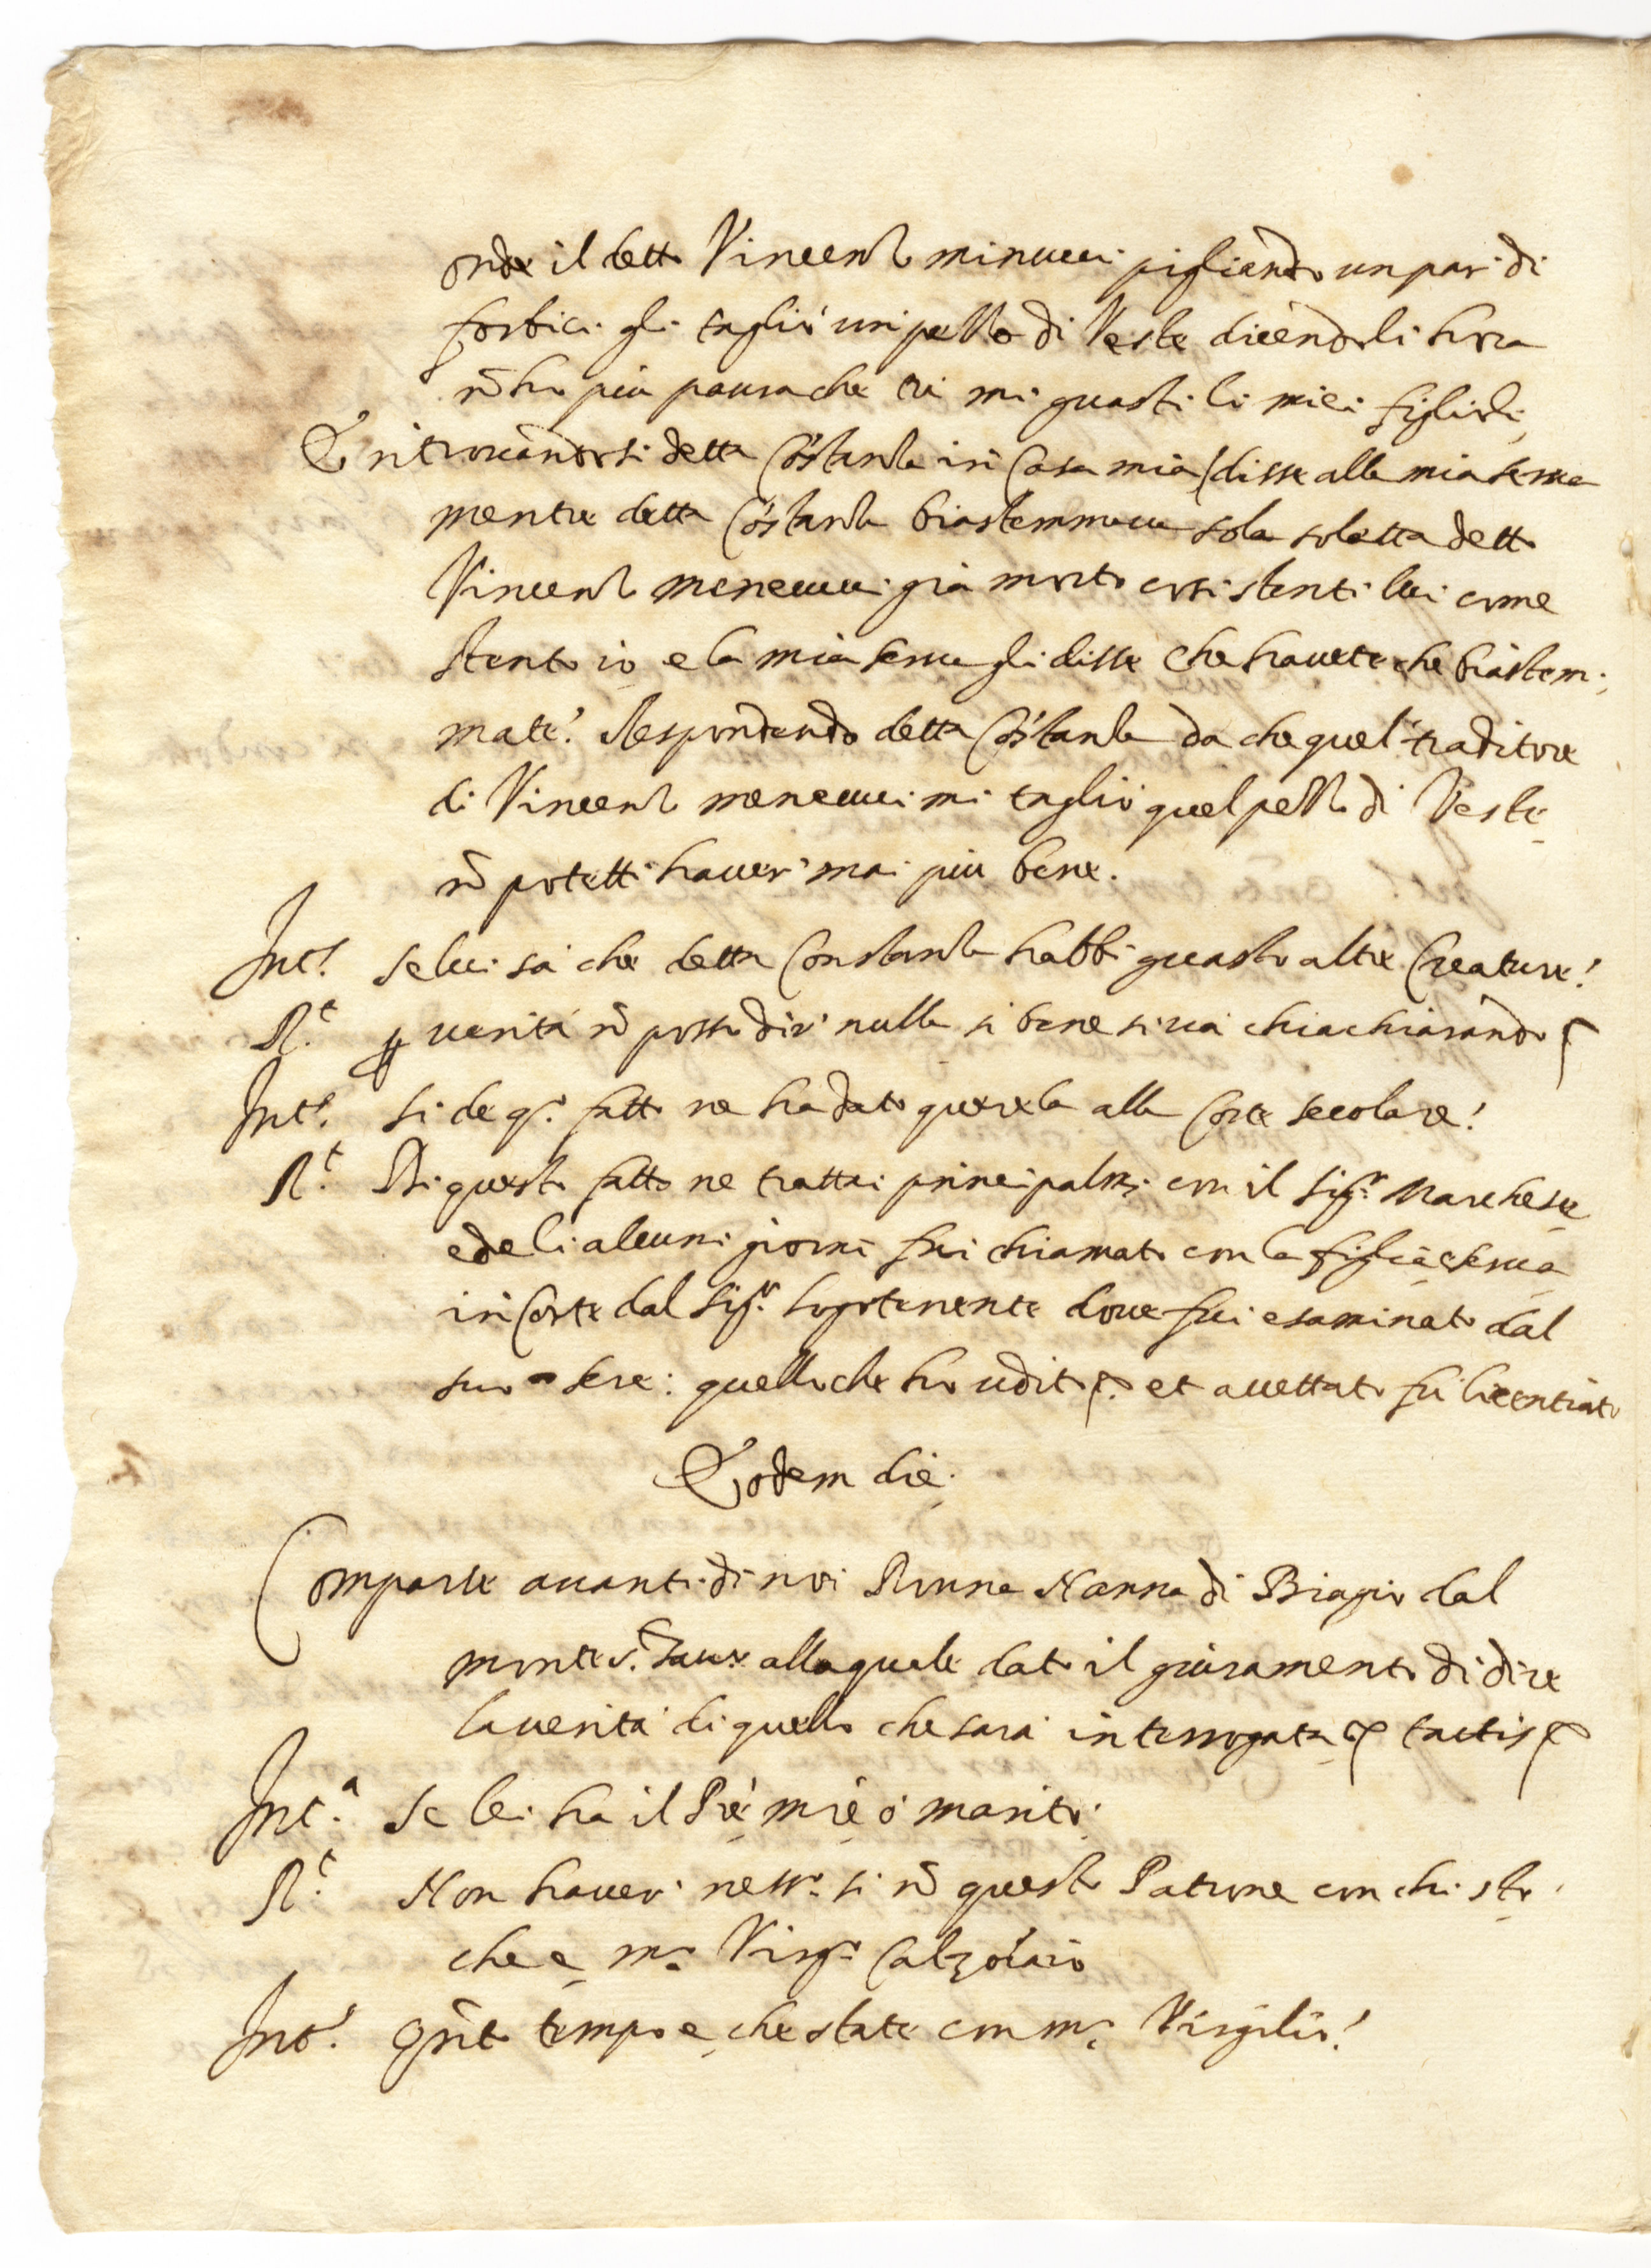 onde il detto Vincenzo minucci pigliando un par di
forbici gli tagliò un pezzo di Veste dicendoli hora
nõ ho più paura che tu mi guasti li miei figlioli
E ritrovandosi detta Cõstanza in Casa mia disse alla mia serva
mentre detta Cõstanza biastemmava sola soletta detto
Vincenzo menecucci già morto cosi stenti lui come
stento io e la mia serva gli disse che havete che biastem:
mate? Respondendo detta Cõstanza da che quel traditore
di Vincenzo menecucci mi tagliò quel pezzo di Veste
nõ potetti haver mai più bene.
Int.º se lui sà che detta Constanza habbi guasto altre Creature?
R.t p verità nõ posso dir nulla si bene si và chiachiarando
Int.º si de q.º fatto ne ha dato querela alla Corte secolare?
R.t Di questo fatto ne trattai principalm.e con il Sig.r Marchese
e de li alcuni giorni fui chiamato con la figlia e serva
in Corte dal Sig.r logotenente dove fui esaminato dal
suo sere: quello che ho udito et accettato fu licentiato
Eodem die
Comparse avanti di noi Donna Nanna di Biagio dal
monte S. alla quale dato il giuramento di dire
la verità di quello che sarà interrogata tactis
Int.a Se lei ha il Prẽ mrẽ ò marito
R.t Non haver ness.º si nõ questo Patrone con chi sto
che e m.º Virg.º Calzolaro
Int.º Qñto tempo e che state con m.º Virgilio?